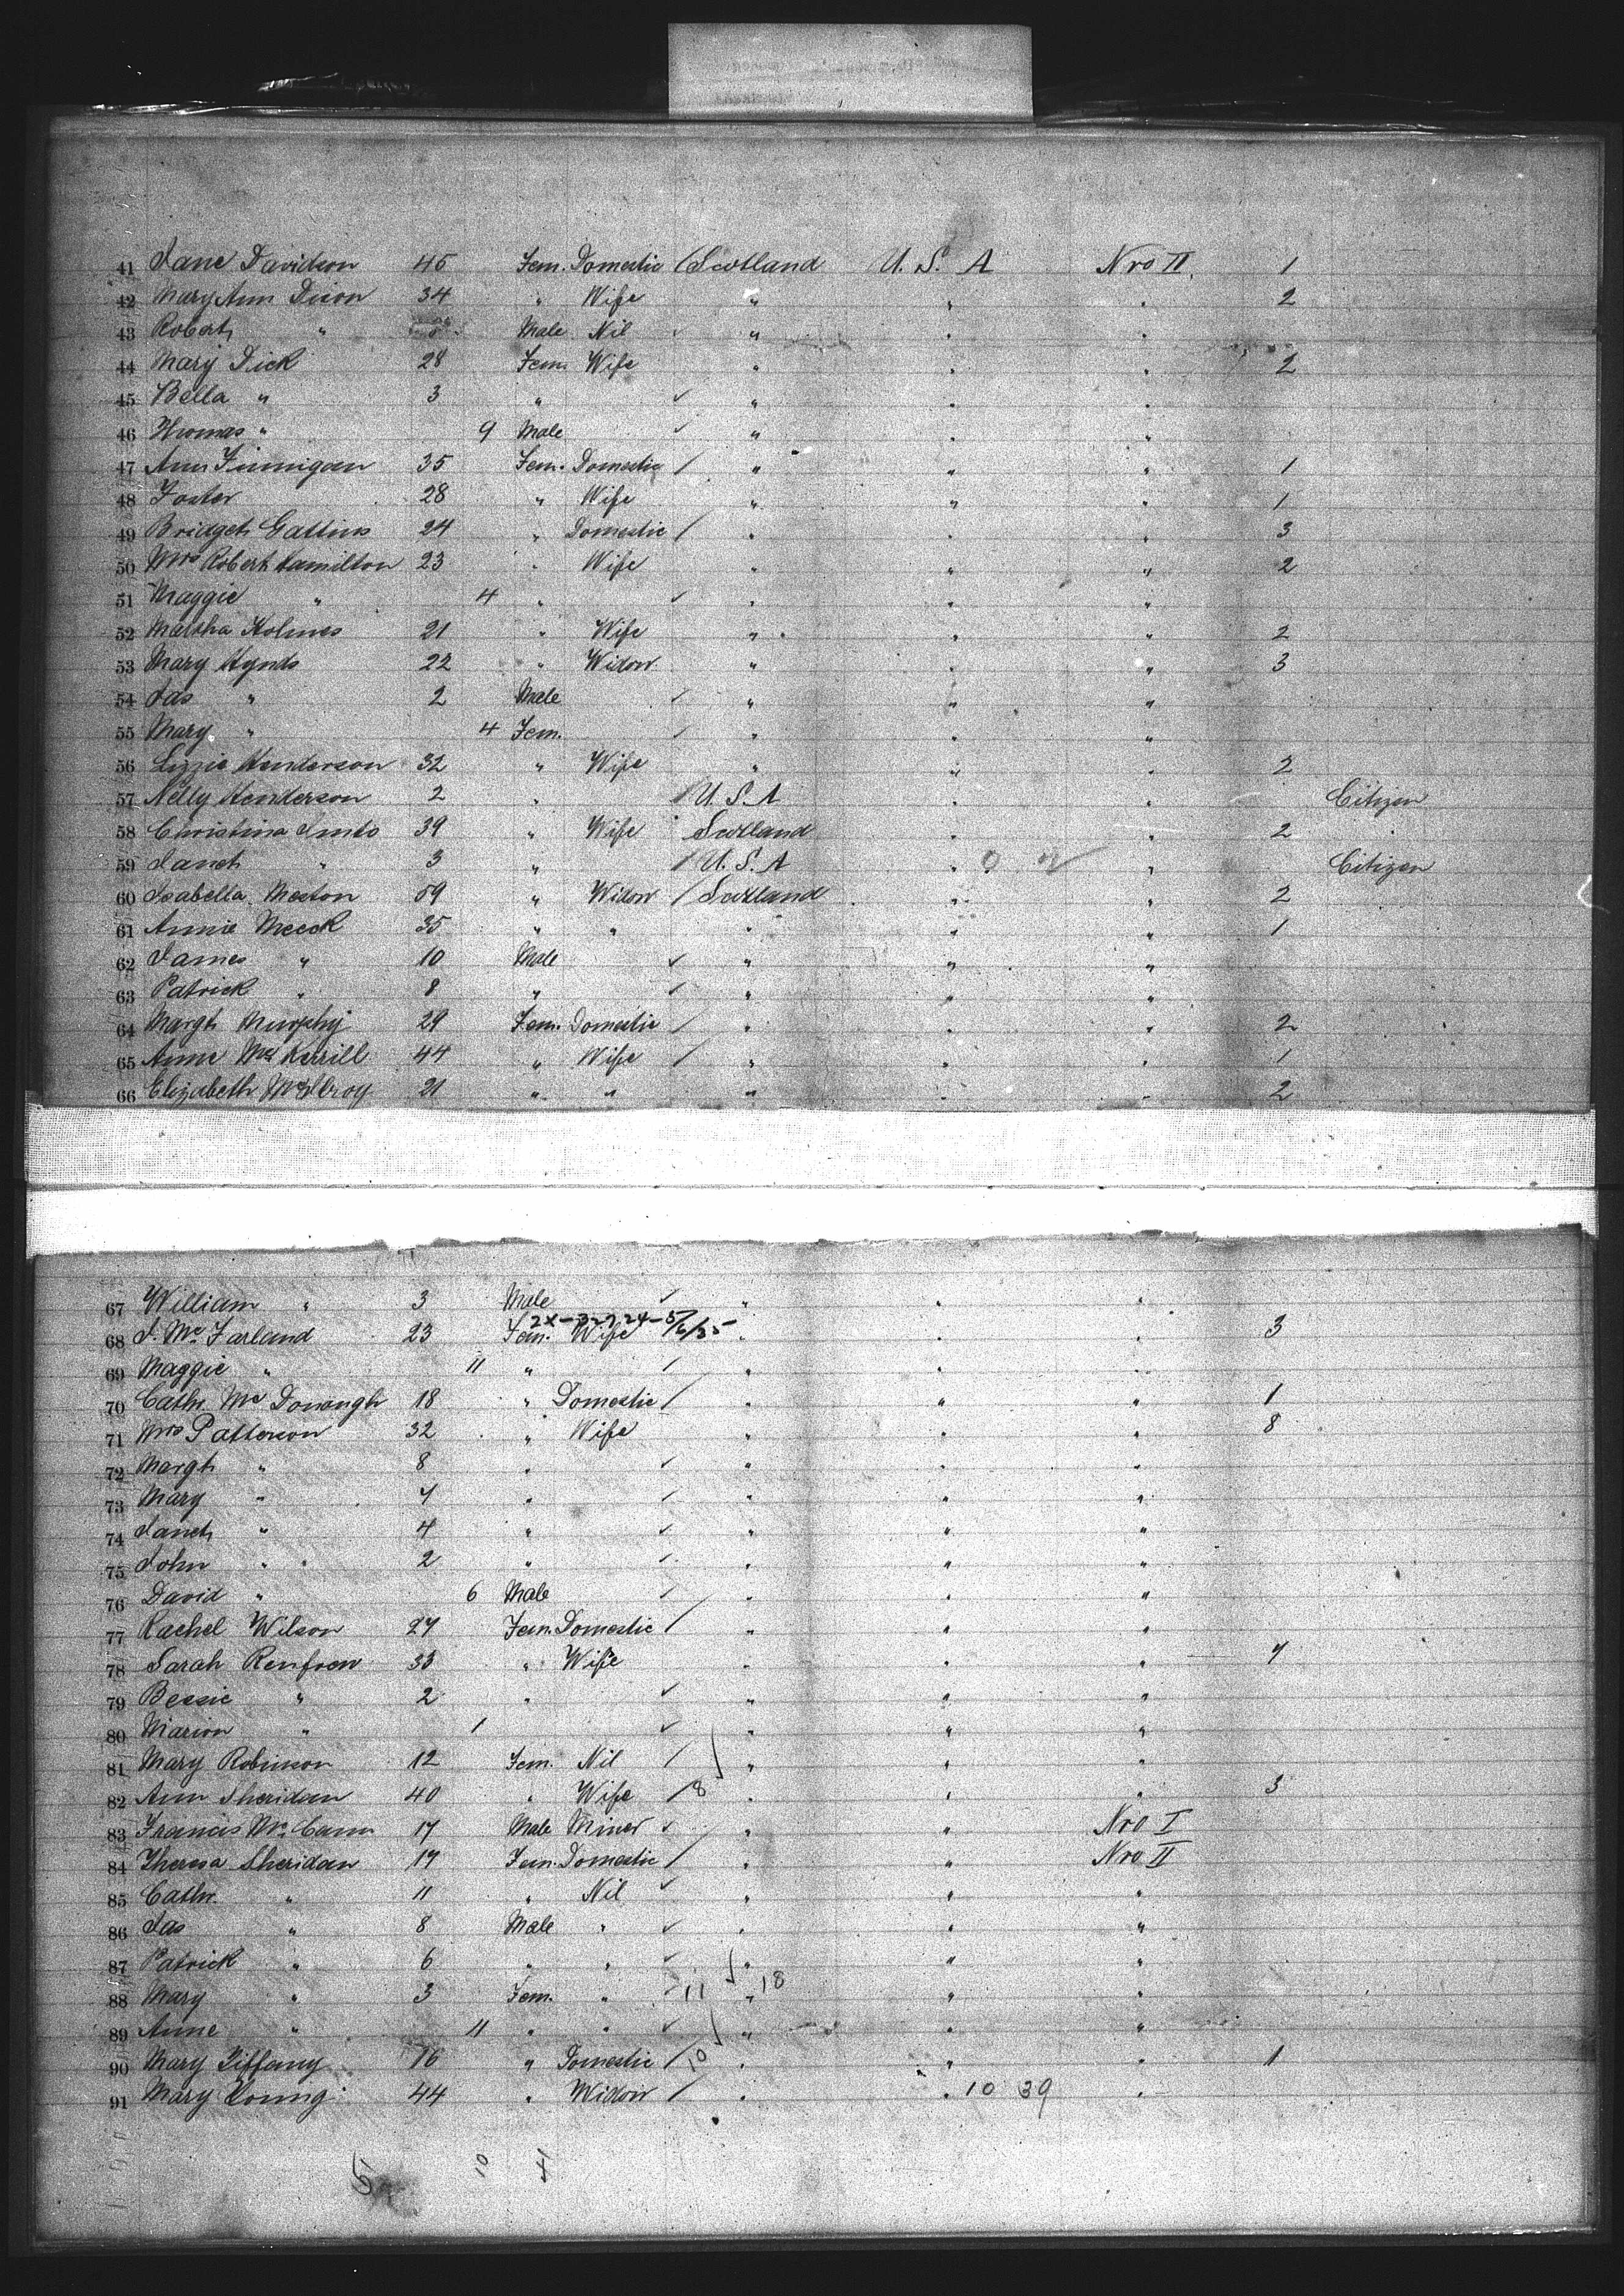 41 Jane Davidson 45 Fem. Domestic / Scotland U. S. A Nro II 1
42 Mary Ann Dixon 34 " Wife " " " 2
43 Robert " Male Nil ✓ " " "
44 Mary Dick 28 Fem. Wife " " " 2
45 Bella " 3 " ✓ " " "
46 Thomas " 9 Male ✓ " " "
47 Ann Finnigan 35 Fem. Domestic / " " " 1
48 Foster 28 " Wife " " " 1
49 Bridget 24 " Domestic / " " " 3
50 Mrs Robert Hamilton 23 " Wife " " " 2
51 Maggie " 4 " ✓ " " "
52 Martha Holmes 21 " Wife " " " 2
53 Mary Hynds 22 " Widow " " " 3
54 Jas " 2 Male ✓ " " "
55 Mary " 4 Fem. ✓ " " "
56 Lizzie Henderson 32 " Wife " " " 2
57 Nelly Henderson 2 " / U. S. A " " Citizen
58 Christina 39 " Wife Scotland " " 2
59 Janet " 3 " / U. S. A " " Citizen
60 Isabella Meston 59 " Widow / Scotland " " 2
61 Annie Meeck 35 " " " " " 1
62 James " 10 Male ✓ " " "
63 Patrick " 8 " ✓ " " "
64 Margt Murphy 29 Fem. Domestic / " " " 2
65 Anne Mc Kerrill 44 " Wife / " " " 1
66 Elizabeth McIlroy 21 " " " " " 2
67 William " 3 Male ✓ " " "
2X-32724-5/6/35
68 J. Mc Farland 23 Fem. Wife " " " 3
69 Maggie " 11 " / " " "
70 Cath. Mc Donough 18 " Domestic / " " " 1
71 Mrs Patterson 32 " Wife " " " 8
72 Margt " 8 " ✓ " " "
73 Mary " 7 " ✓ " " "
74 Janet " 4 " ✓ " " "
75 John " 2 " ✓ " " "
76 David " 6 Male ✓ " " "
77 Rachel Wilson 27 Fem. Domestic / " " "
78 Sarah Renfrew 33 " Wife " " " 7
79 Bessie " 2 " ✓ " " "
80 Marion " 1 ✓ " " "
81 Mary Robinson 12 Fem. Nil / " " "
82 Ann Sheridan 40 " Wife / 8 " " " 3
83 Francis Mc Cann 17 Male Miner ✓ " " Nro I
84 Theresa Sheridan 17 Fem. Domestic / " " Nro II
85 Cath. " 11 " Nil ✓ " " "
86 Jas " 8 Male " ✓ " " "
87 Patrick " 6 " " ✓ " " "
88 Mary " 3 Fem. " ✓ 11 " 18 " "
89 Anne " 11 " " ✓ " " "
90 Mary Tiffany 16 " Domestic / 10 " " " 1
91 Mary Young 44 " Widow / " " 10 39 "
5 10 4